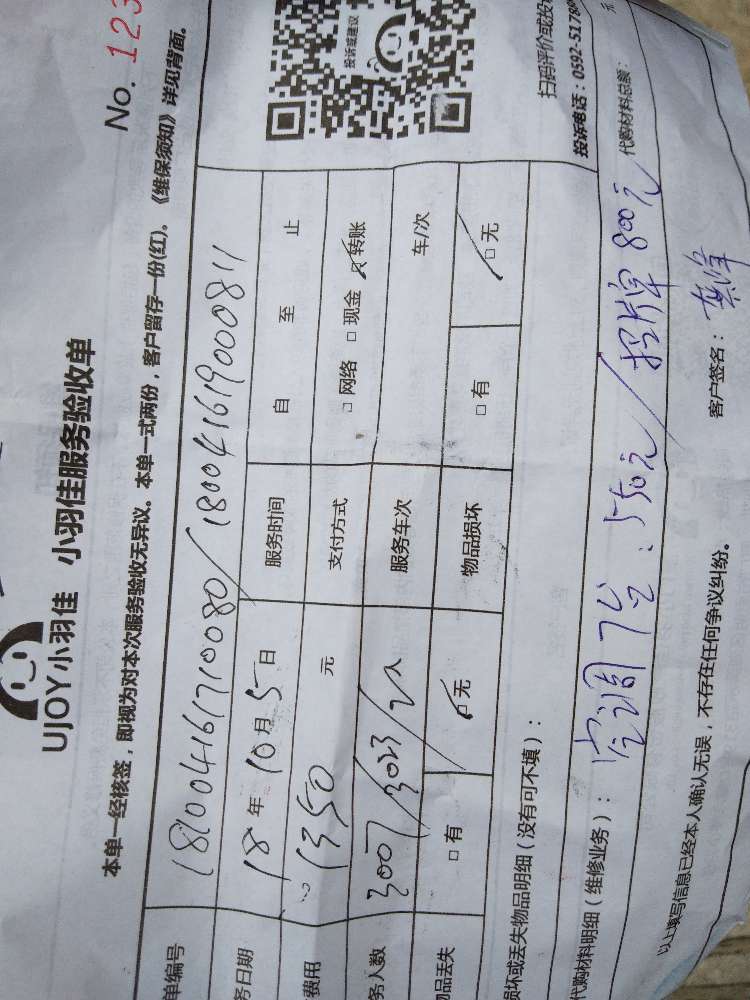 UJOY小羽佳 小羽佳服务验收单
No. 123
本单一经核签，即视为对本次服务验收无异议。本单一式两份，客户留存一份(红)。《维保须知》详见背面。
单编号 18100416171 0080/18004161900081 1
务日期 18 年 10 月 5 日 服务时间 自 至 止
费用 1350 元 支付方式 □ 网络 □ 现金 ☑ 转账
务人数 3007/3023/2人 服务车次 车/次
物品丢失 □ 有 ☑ 无 物品损坏 □ 有 ☑ 无
投诉或建议
扫码评价或投
投诉电话：0592-51798
损坏或丢失物品明细（没有可不填）：
元
代购材料明细（维修业务）： 空调7台：550元/招牌字800元 代购材料总额：
以上填写信息已经本人确认无误，不存在任何争议纠纷。 客户签名：